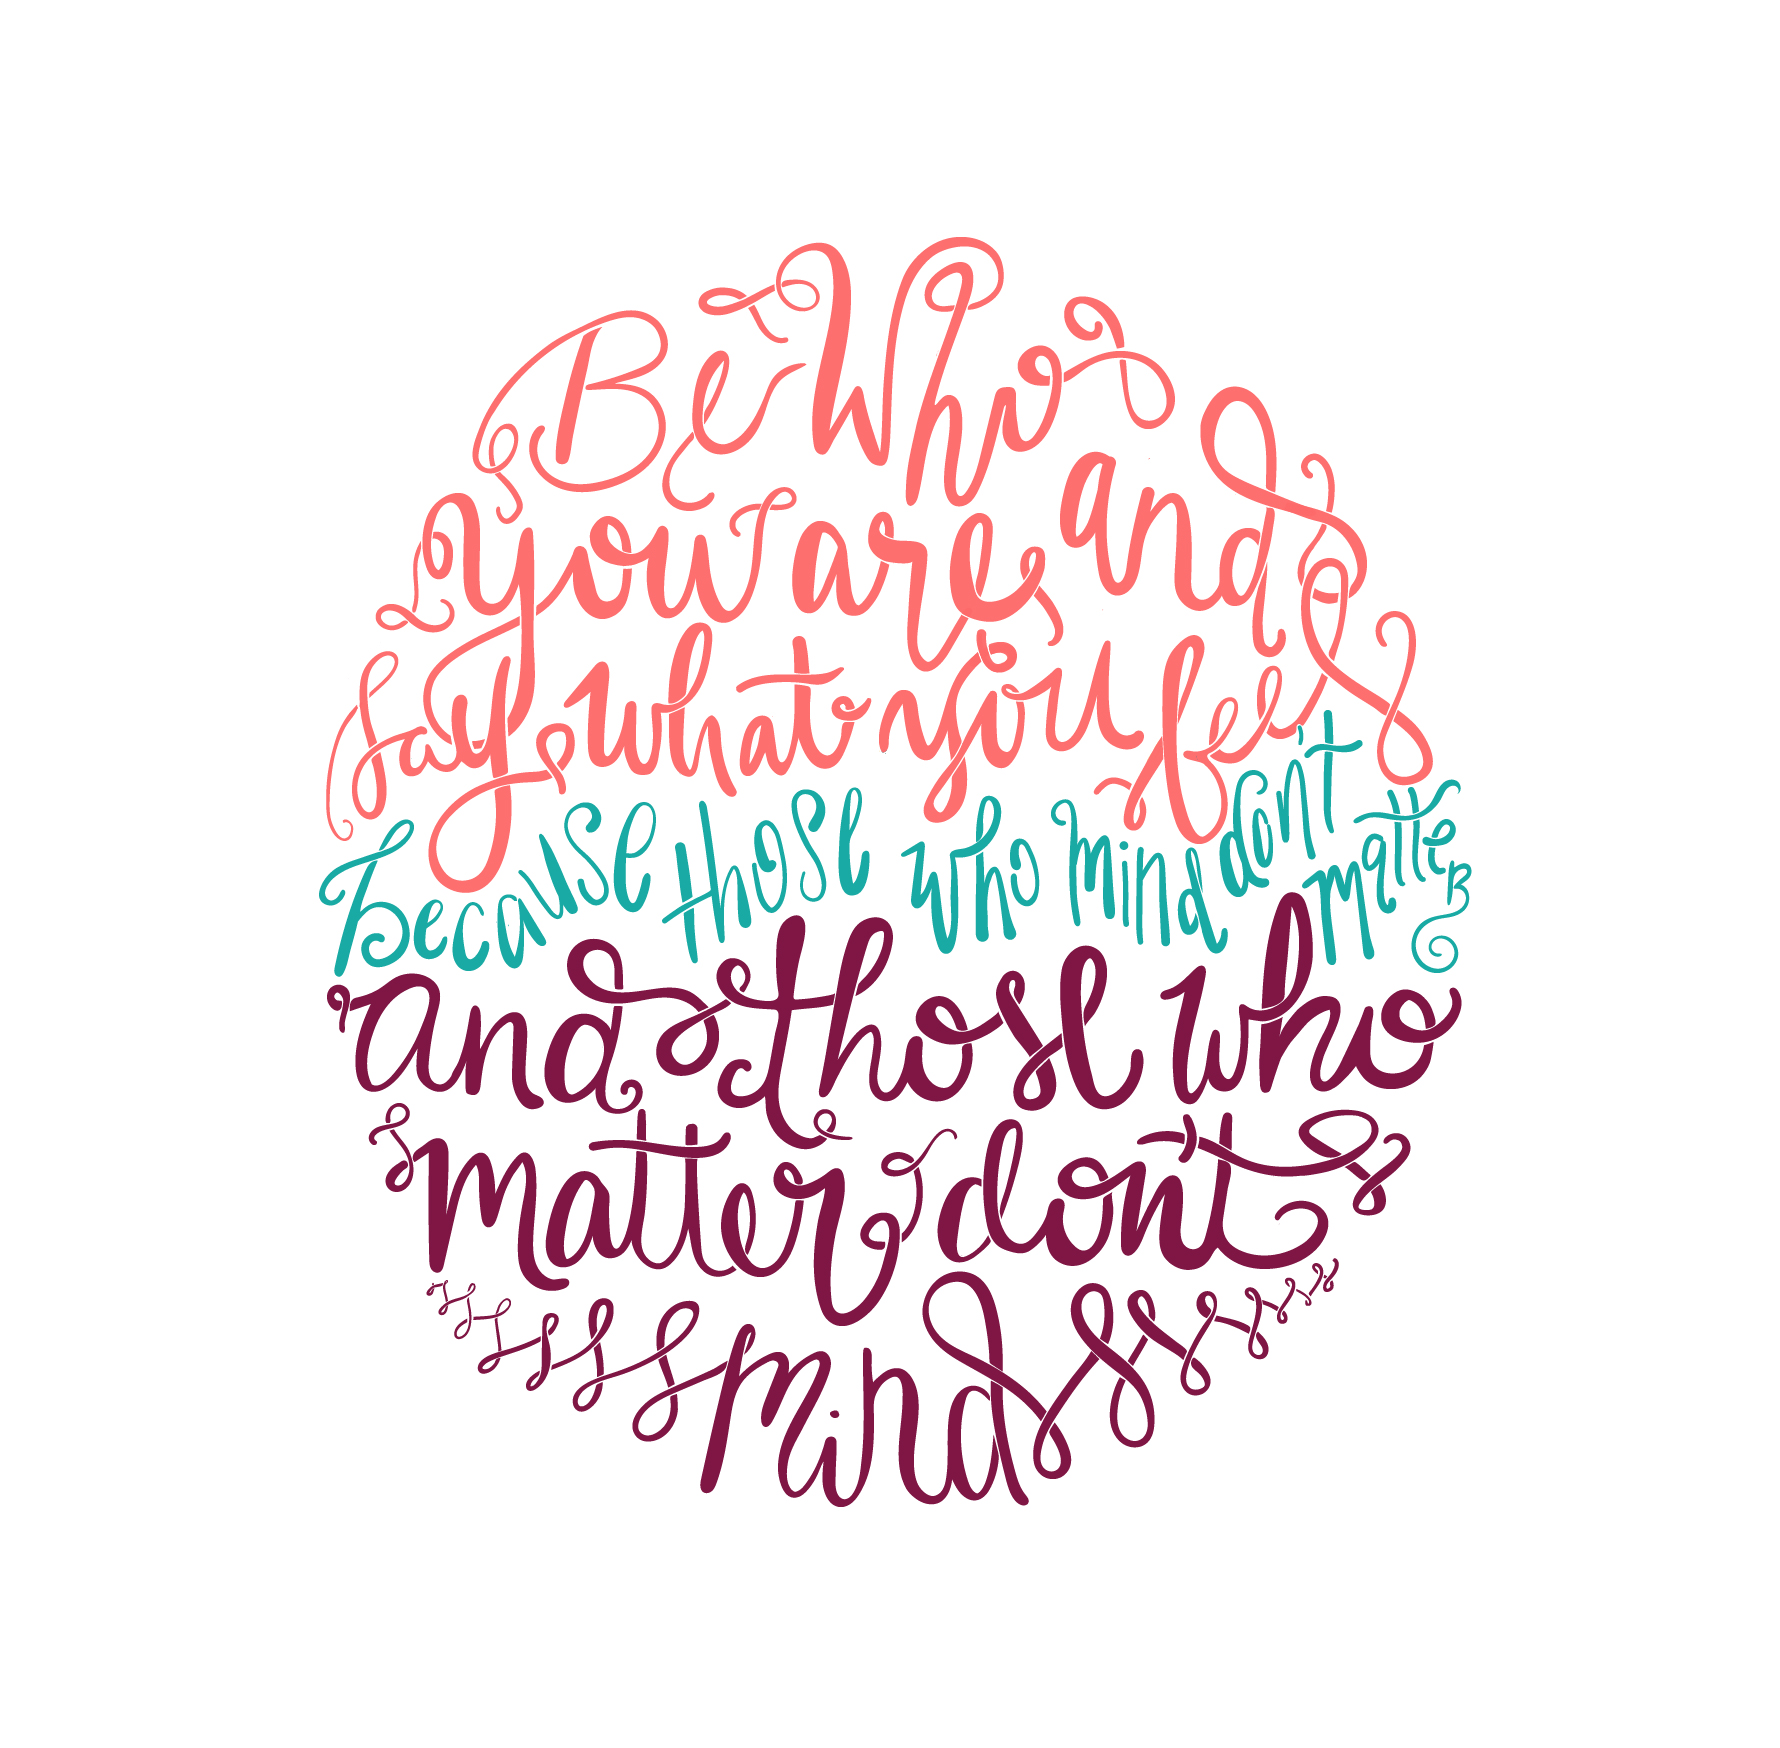 Be who
you are and
say what you feel
because those who mind don't matter
and those who
matter don't
mind